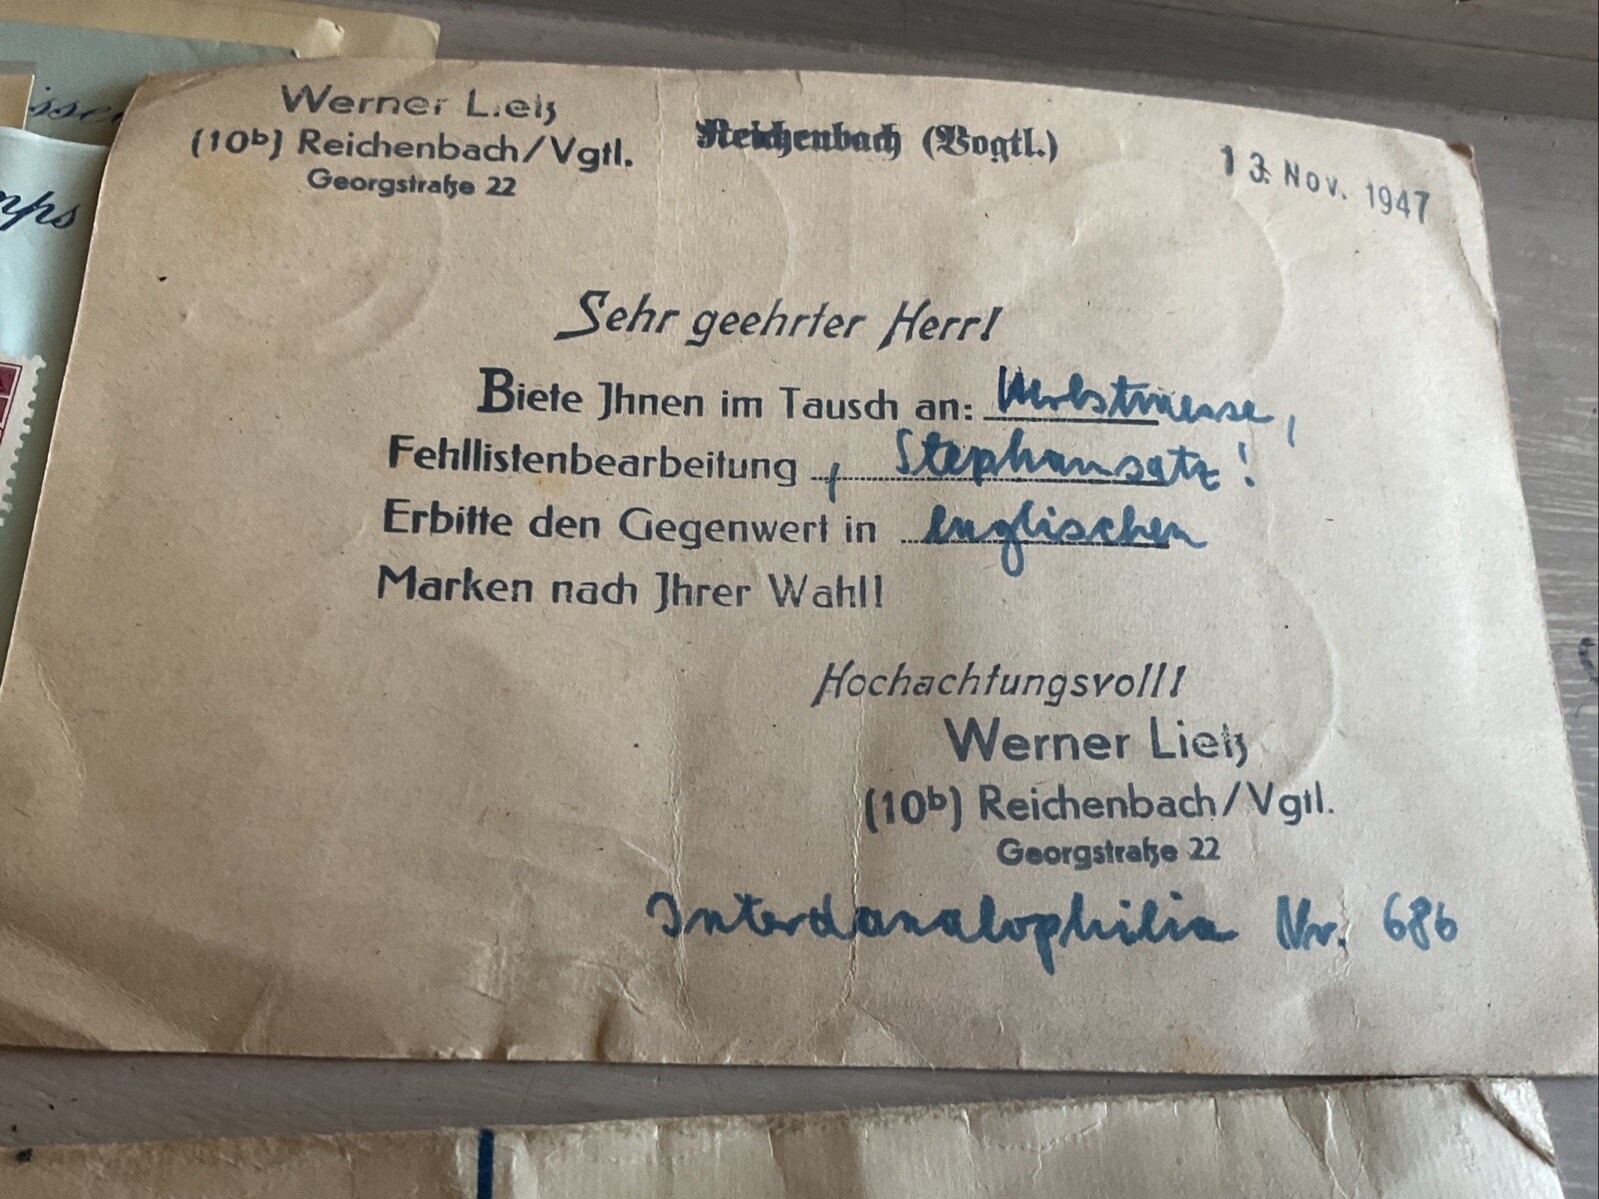 Werner Lietz
(10b) Reichenbach/Vgtl.
Georgstraße 22
Reichenbach (Vogtl.)
13. Nov. 1947
Sehr geehrter Herr!
Biete Jhnen im Tausch an: Herbstmesse,
Fehllistenbearbeitung, Stephansatz!
Erbitte den Gegenwert in englischen
Marken nach Jhrer Wahl!
Hochachtungsvoll!
Werner Lietz
(10b) Reichenbach/Vgtl.
Georgstraße 22
Interdanalophilia Nr. 686